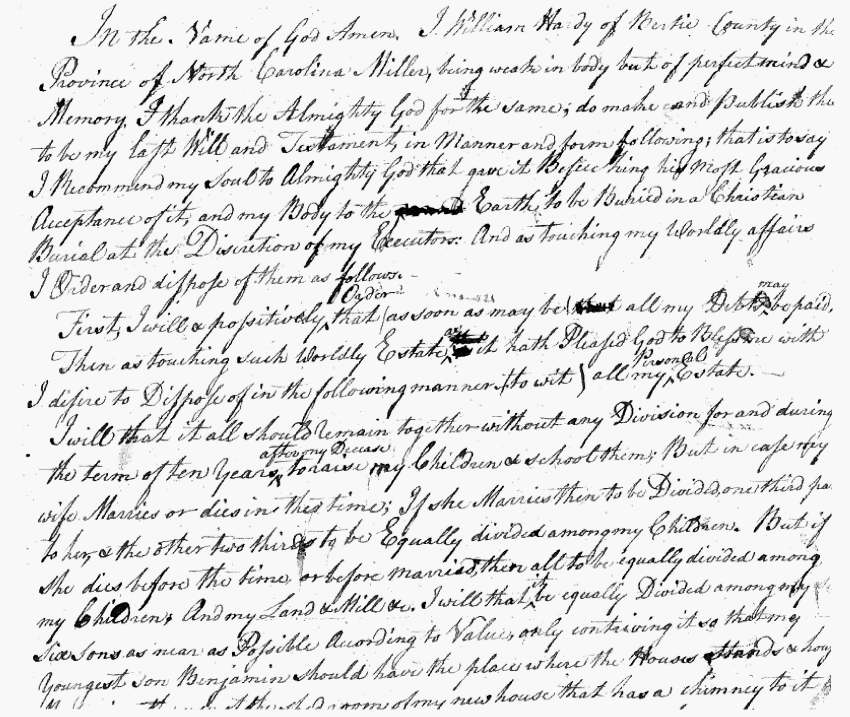 In the Name of God Amen. I William Hardy of Bertie County in the
Province of North Carolina Miller, being weak in body but of perfect mind &
Memory, I thank the Almighty God for the same; do make and Publish the
to be my last Will and Testament, in Manner and form following; that is to say
I Recommend my Soul to Almighty God that gave it Beseeching his Most Gracious
Acceptance of it, and my Body to the Earth, to be Buried in a Christian
Burial at the Discretion of my Executors: And as touching my Worldly affairs
I Order and dispose of them as follows. –
Order may
First, I will & possitively, that (as soon as may be) all my Debts be paid.
as
Then as touching such Worldly Estate, it hath Pleased God to Bless me with
Personal
I disire to Disspose of in the following manner, (to wit) all my Estate. –
I will that it all should remain together without any Division for and during
after my Decease
the term of ten Years, to raise my Children & school them; But in case my
wife Marries or dies in this time; If she Marries then to be Divided, one third pa
to her, & the other two thirds to be Equally divided among my Children. But if
she dies before the time, or before married, then all to be equally divided among
it
my Children; And my Land & Mill &c. I will that be equally Divided among my
six sons as near as Possible According to Value, only contriving it so that my
Youngest son Benjamin should have the place where the Houses stands &
the shed room of my new house that has a chimney to it